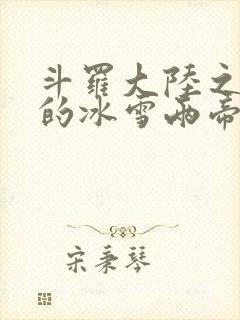 斗羅大陸之
的冰雪兩帝
宋秉琴